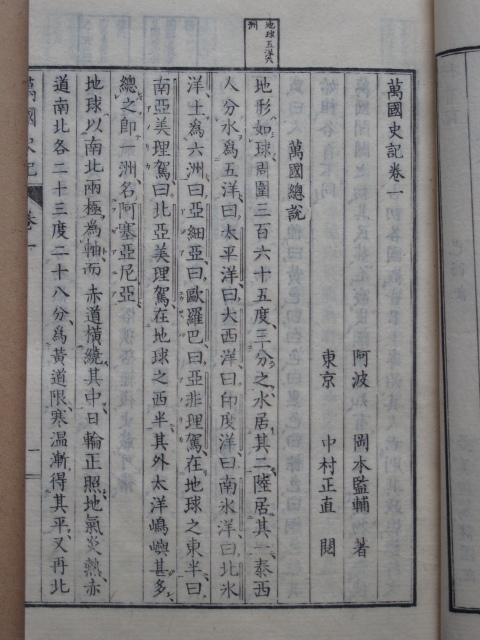 地球五洋六
洲
萬國史記卷一
阿波 岡本監輔 著
東京 中村正直 閲
萬國總說
地形如球周圍三百六十五度三分之水居其二陸居其一泰西
人分水爲五洋曰太平洋曰大西洋曰印度洋曰南氷洋曰北氷
洋土爲六洲曰亞細亞曰歐羅巴曰亞非理駕在地球之東半曰
南亞美理駕曰北亞美理駕在地球之西半其外太洋嶋嶼甚多
總之卽一洲名阿塞亞尼亞
地球以南北兩極為軸而赤道橫繞其中日輪正照地氣炎熱赤
道南北各二十三度二十八分爲黃道限寒温漸得其平又再北
萬國史記 卷一 一